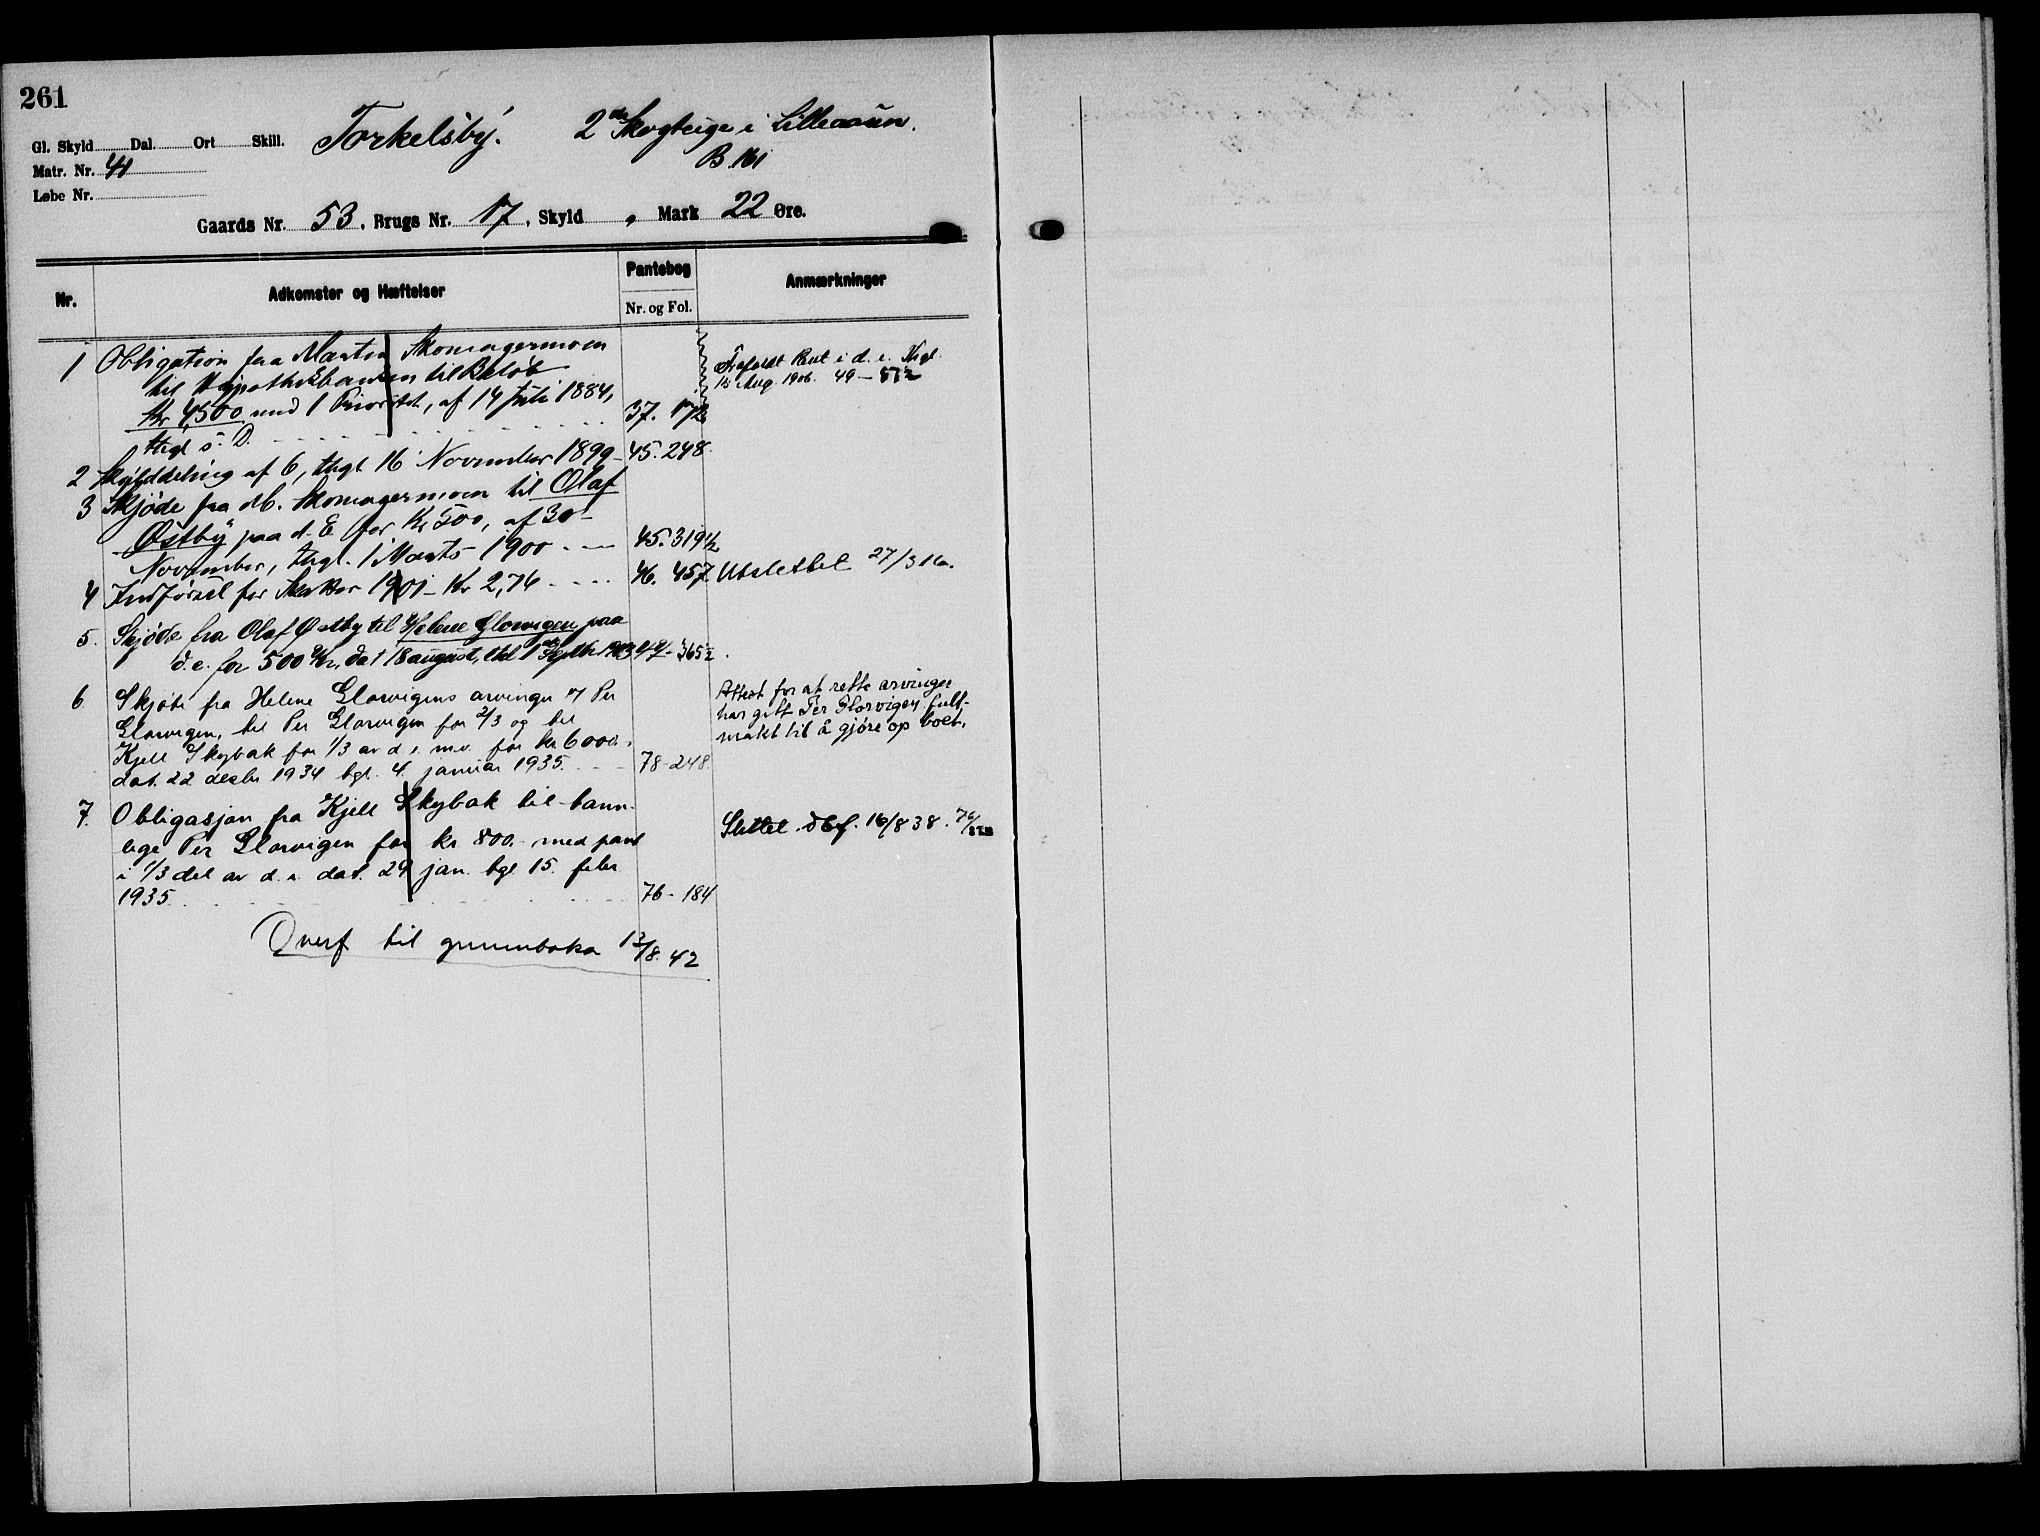 261
Gl. Skyld Dal. Ort Skill. Torkelsby. 2de Skogteige i Lilleaasen.
Matr. Nr. 41 B. 161
Løbe Nr.
Gaards Nr. 53, Brugs Nr. 17, Skyld , Mark 22 Øre.
Nr. Adkomster og Hæftelser Pantebog Nr. og Fol. Anmærkninger
1 Obligation fra Martin Skomagermoen
til Hypothekbanken til Beløb
Kr 4500 med 1 Prioritet, af 14 Juli 1884,
thgl s. D. 37. 172
Frafaldt Pant i d. e. thgl.
15 Aug. 1906. 49 - 572
2 Skylddeling af 6, thgl 16 November 1899 - 45. 248.
3 Skjøde fra M. Skomagermoen til Olaf
Østby paa d. E for Kr 500, af 30
November, thgl. 1 Marts 1900 - 45. 319½
4 Indførsel for Skatter 1901 - Kr 2,76 46. 457 Utslettet 27/3 16.
5. Skjøde fra Olaf Østby til Helene Glorvigen paa
d. e. for 500 Kr, dat 18 august, thl 1ste Septbr 1903 47 - 365½.
6 Skjøte fra Helene Glorvigens arvinger v/ Per
Glorvigen, til Per Glorvigen for 2/3 og til
Kjell Skybak for 1/3 av d. e. m.v. for kr 6000.-
dat. 22 desbr 1934 tgl. 4. januar 1935. 78-248.
Attest for at rette arvinger
har gitt Per Glorvigen full-
makt til å gjøre op boet.
7. Obligasjon fra Kjell Skybak til bann-
lige Per Glorvigen for kr 800.- med pant
i 1/3 del av d. e. dat. 29 jan. tgl 15. febr
1935 76 - 184
Slettet dbf. 16/8 38. 76/
Overf til grunnboka 13/8. 42